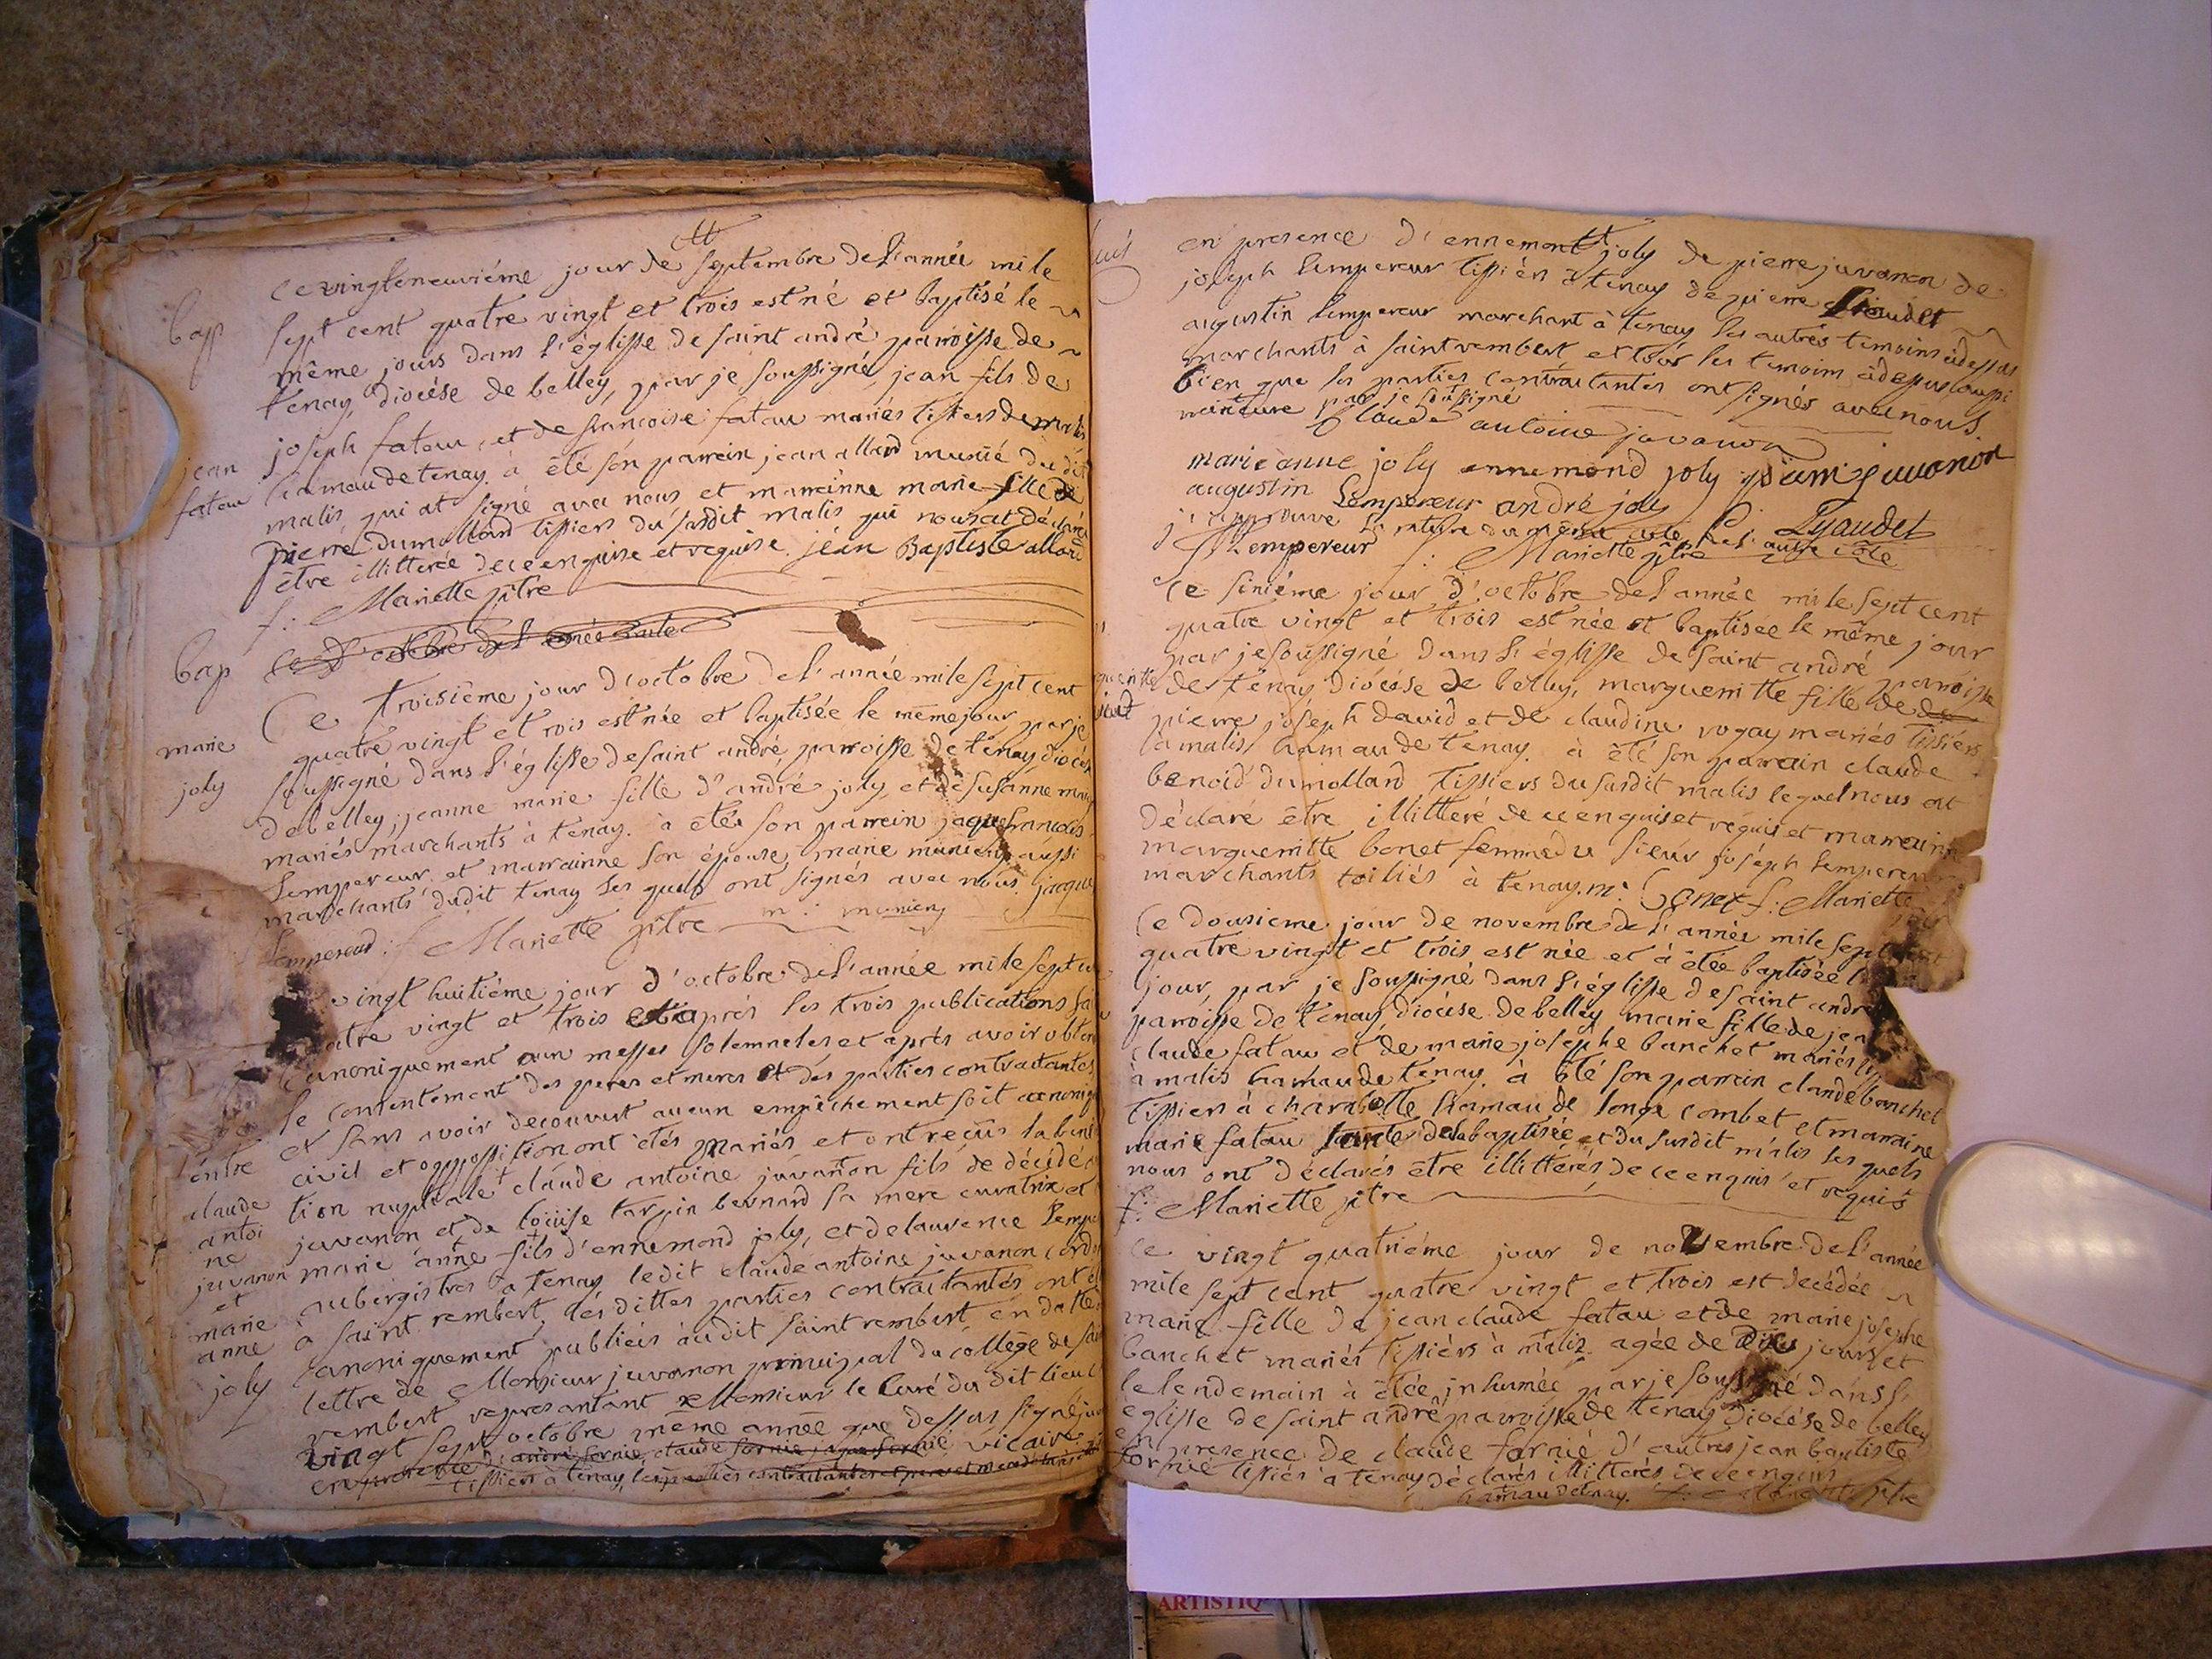 ce vingteneuviéme jour de septembre de l'année mile
bap sept cent quatre vingt et trois est né et baptisé le
même jours dans l'églisse de saint andré paroisse de
tenay, diocése de belley, par je soussigné, jean fils de
joseph fatau, et de francoise fatau mariés tissiers de malis
jean hamau de tenay. à êté són parrein jean allard munié du dit
fatau malis qui at signé avec nous et marreinne marie fille de
pierre dumollard tissiers du susdit malis qui nous at déclaré
être illitterée de ce enquise et requise. jéan Baptiste allard
f: Mariette ptre
bap
Ce troisiéme jour d'octobre de l'année mile sept cent
marie quatre vingt et rois est née et baptisée le même jour par je
joly soussigné dans l'églisse de saint andré, parroisse de tenay diocése
de belley, jeanne marie fille d'andré joly, et de susanne
mariés marchants à tenay. à êtés son parrein jaque francois
Lempereur et marrainne son épouse, marie muniery aussi
marchants dudit tenay les quels ont signés avec nous. jaque
Lempereur: f: Mariette ptre m: muniery
vingt huitiéme jour d'octobre de l'année mile sept
quatre vingt et trois après les trois publications
canoniquement aux messes solemneles et après avoir obten
le consentement des peres et meres et des parties contraitantes
et sans avoir decouvert aucun empêchement soit canoniq
entre civil et oppossition ont êtés mariés et ont reçus la bene
claude tion nuptiale claude antoine juvanon fils de décédé
antoi juvanon et de loüise tarpin bernard sa mere curatrix et
ne marie anne fils d'ennemond joly, et de laurence Lempe
juvanon aubergistres à tenay ledit claude antoine juvanon
et à saint rembert, lés dittes parties contraitantés ont
marie canoniquement publiées audit saint rembert en datte
anne lettre de Monsieur juvanon prinuipal du collége de sai
joly rembert representant Monsieur le Curé du dit lieu
vingt sept octobre même année que dessus signé
en presence d: andré fornie, claude fornie vicaire
tissiers à tenay, les parties contraitantes
en presence d'ennemont joly de pierre juvanon de
joseph Lempereur tissiér à tenay de pierre Liaudet
augustin Lempereur marchant à tenay les autrés temoins cidessus
marchants à saint rembert et tous les temoim cidessus aussi
bien que les parties contraitantes ont signés avec nous.
par je soussigné
Claude antoine juvanon
marie anne joly ennemond joly juvanon
augustin Lempereur andré joly
j'approuve Lyaudet
Lempereur f: Mariette ptre
Ce siniéme jour d'octobre de l'année mile sept cent
quatre vingt et trois est née et baptisée le même jour
par je soussigné dans l'églisse de saint andré paroisse
de tenay diocése de belley, marguerritte fille de
pierre joséph david et de claudine rogay mariés tissiérs
à malis hamau de tenay. à êté son parrain claude
benoid dumollard tissiers du susdit malis le quel nous at
déclaré être illittéré de ce enquis et requis et marreinne
marguerritte bonet femme du sieur joséph Lempereur
marchants toiliés à tenay. m: Bonet f: Mariette
Ce dousieme jour de novembre de l'année mile sept cent
quatre vingt et trois est née et à êtée baptisée le
jour, par je soussigné dans l'églisse de saint andré
paroisse de tenay diocése de belley marie fille de jean
claude fatau et de marie josephe banchet mariés
à malis hamau de tenay. à êté son parrain claude banchet
tissiers à charabotte hamau de longe combet et marraine
marie fatau tante de la baptisée et du susdit malis les quels
nous ont déclarés être illitterés, de ce enquis et requis
f: Mariette ptre
Ce vingt quatriéme jour de november de l'année
mile sept cent quatre vingt et trois est decédée
marie fille de jean claude fatau et de marie josephe
banchet mariés tissiérs à malis. agée de jours et
le lendemain à êtée inhumée par je soussigné dans l'
églisse de saint andré paroisse de tenay diocése de belley
en presence de claude fornié d'autres jean baptiste
fornié tissiés à tenay déclarés illitterés de ce enquis
hamau de tenay. f: Mariette ptre
ARTISTIQ